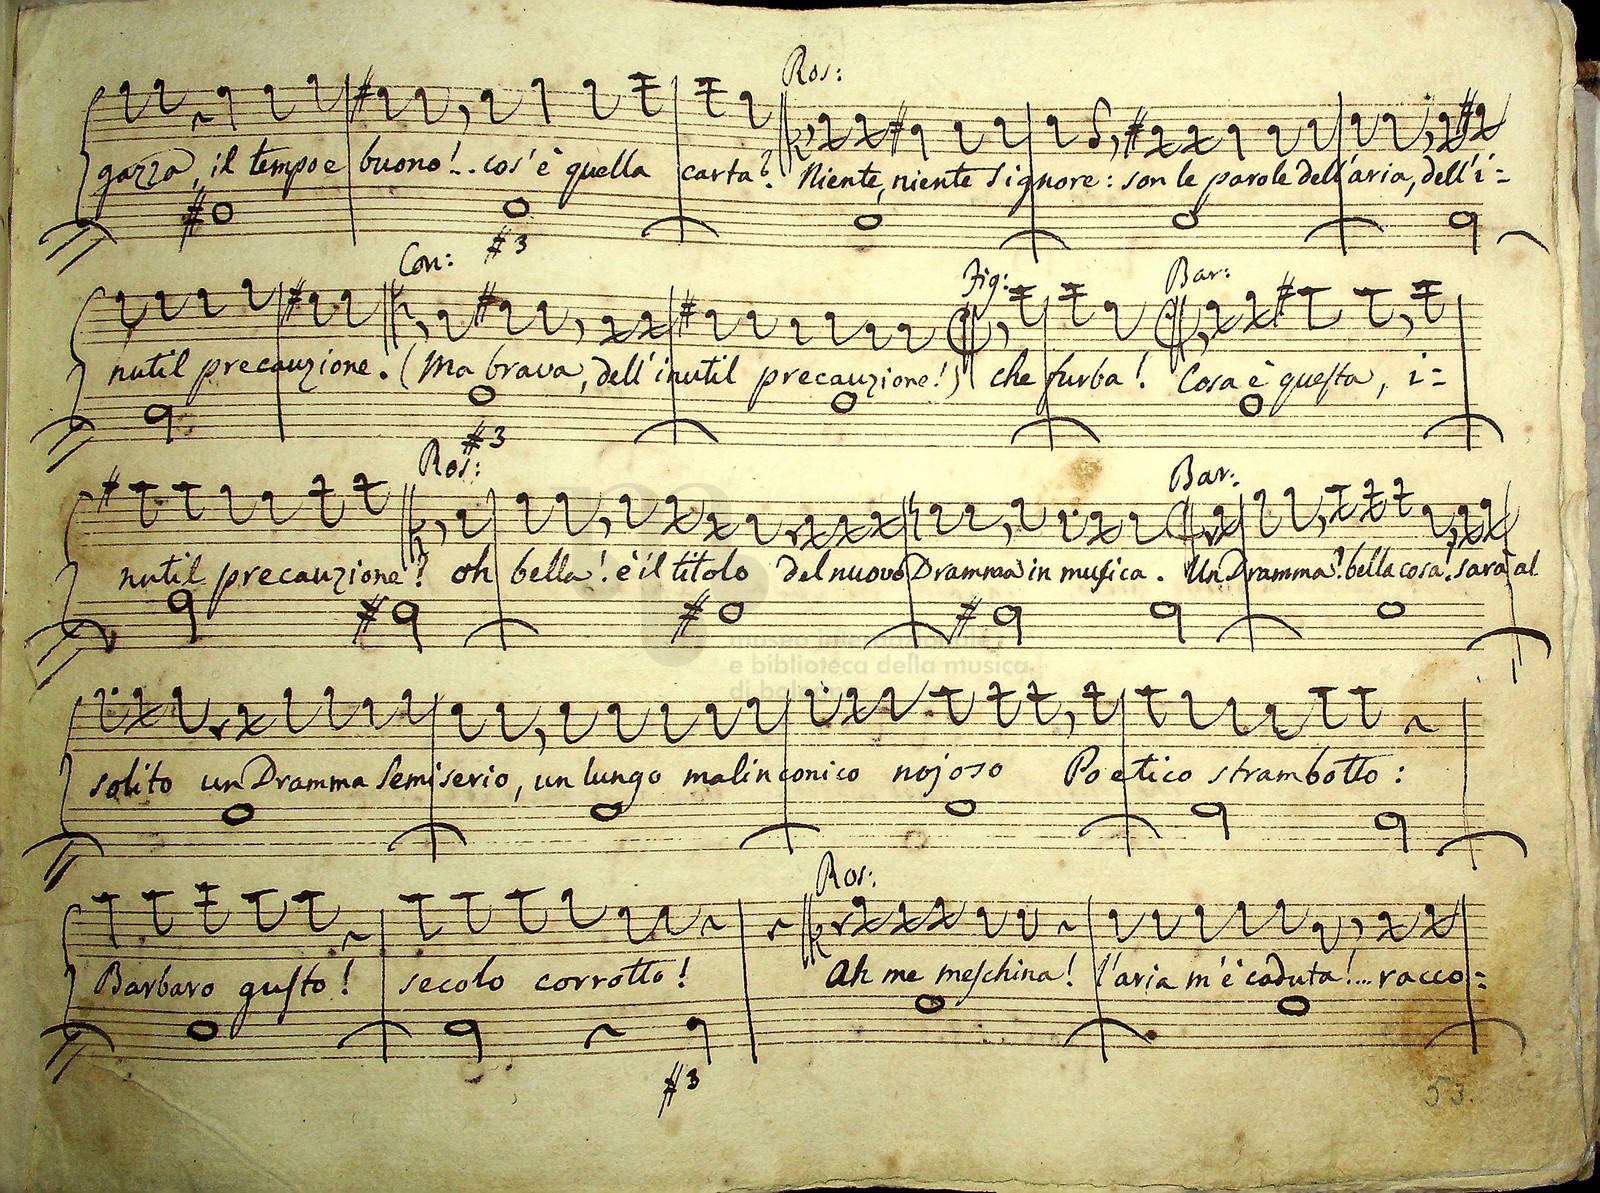 Ros:
gazza, il tempo e buono!.. cos'è quella carta? Niente, niente Signore: son le parole dell'aria, dell'i=
#3
Con: Fig: Bar:
nutil precauzione. (Ma brava, dell'inutil precauzione!) che furba! Cosa è questa, i=
#3
Ros: Bar:
nutil precauzione? oh bella! è il titolo del nuovo Dramma in musica. Un Dramma? bella cosa! sarà al
e biblioteca della musica
solito un Dramma Semiserio, un lungo malinconico nojoso Poetico strambotto:
Ros:
Barbaro gusto! secolo corrotto! Ah me meschina! l'aria m'è caduta!... racco=
#3
53.